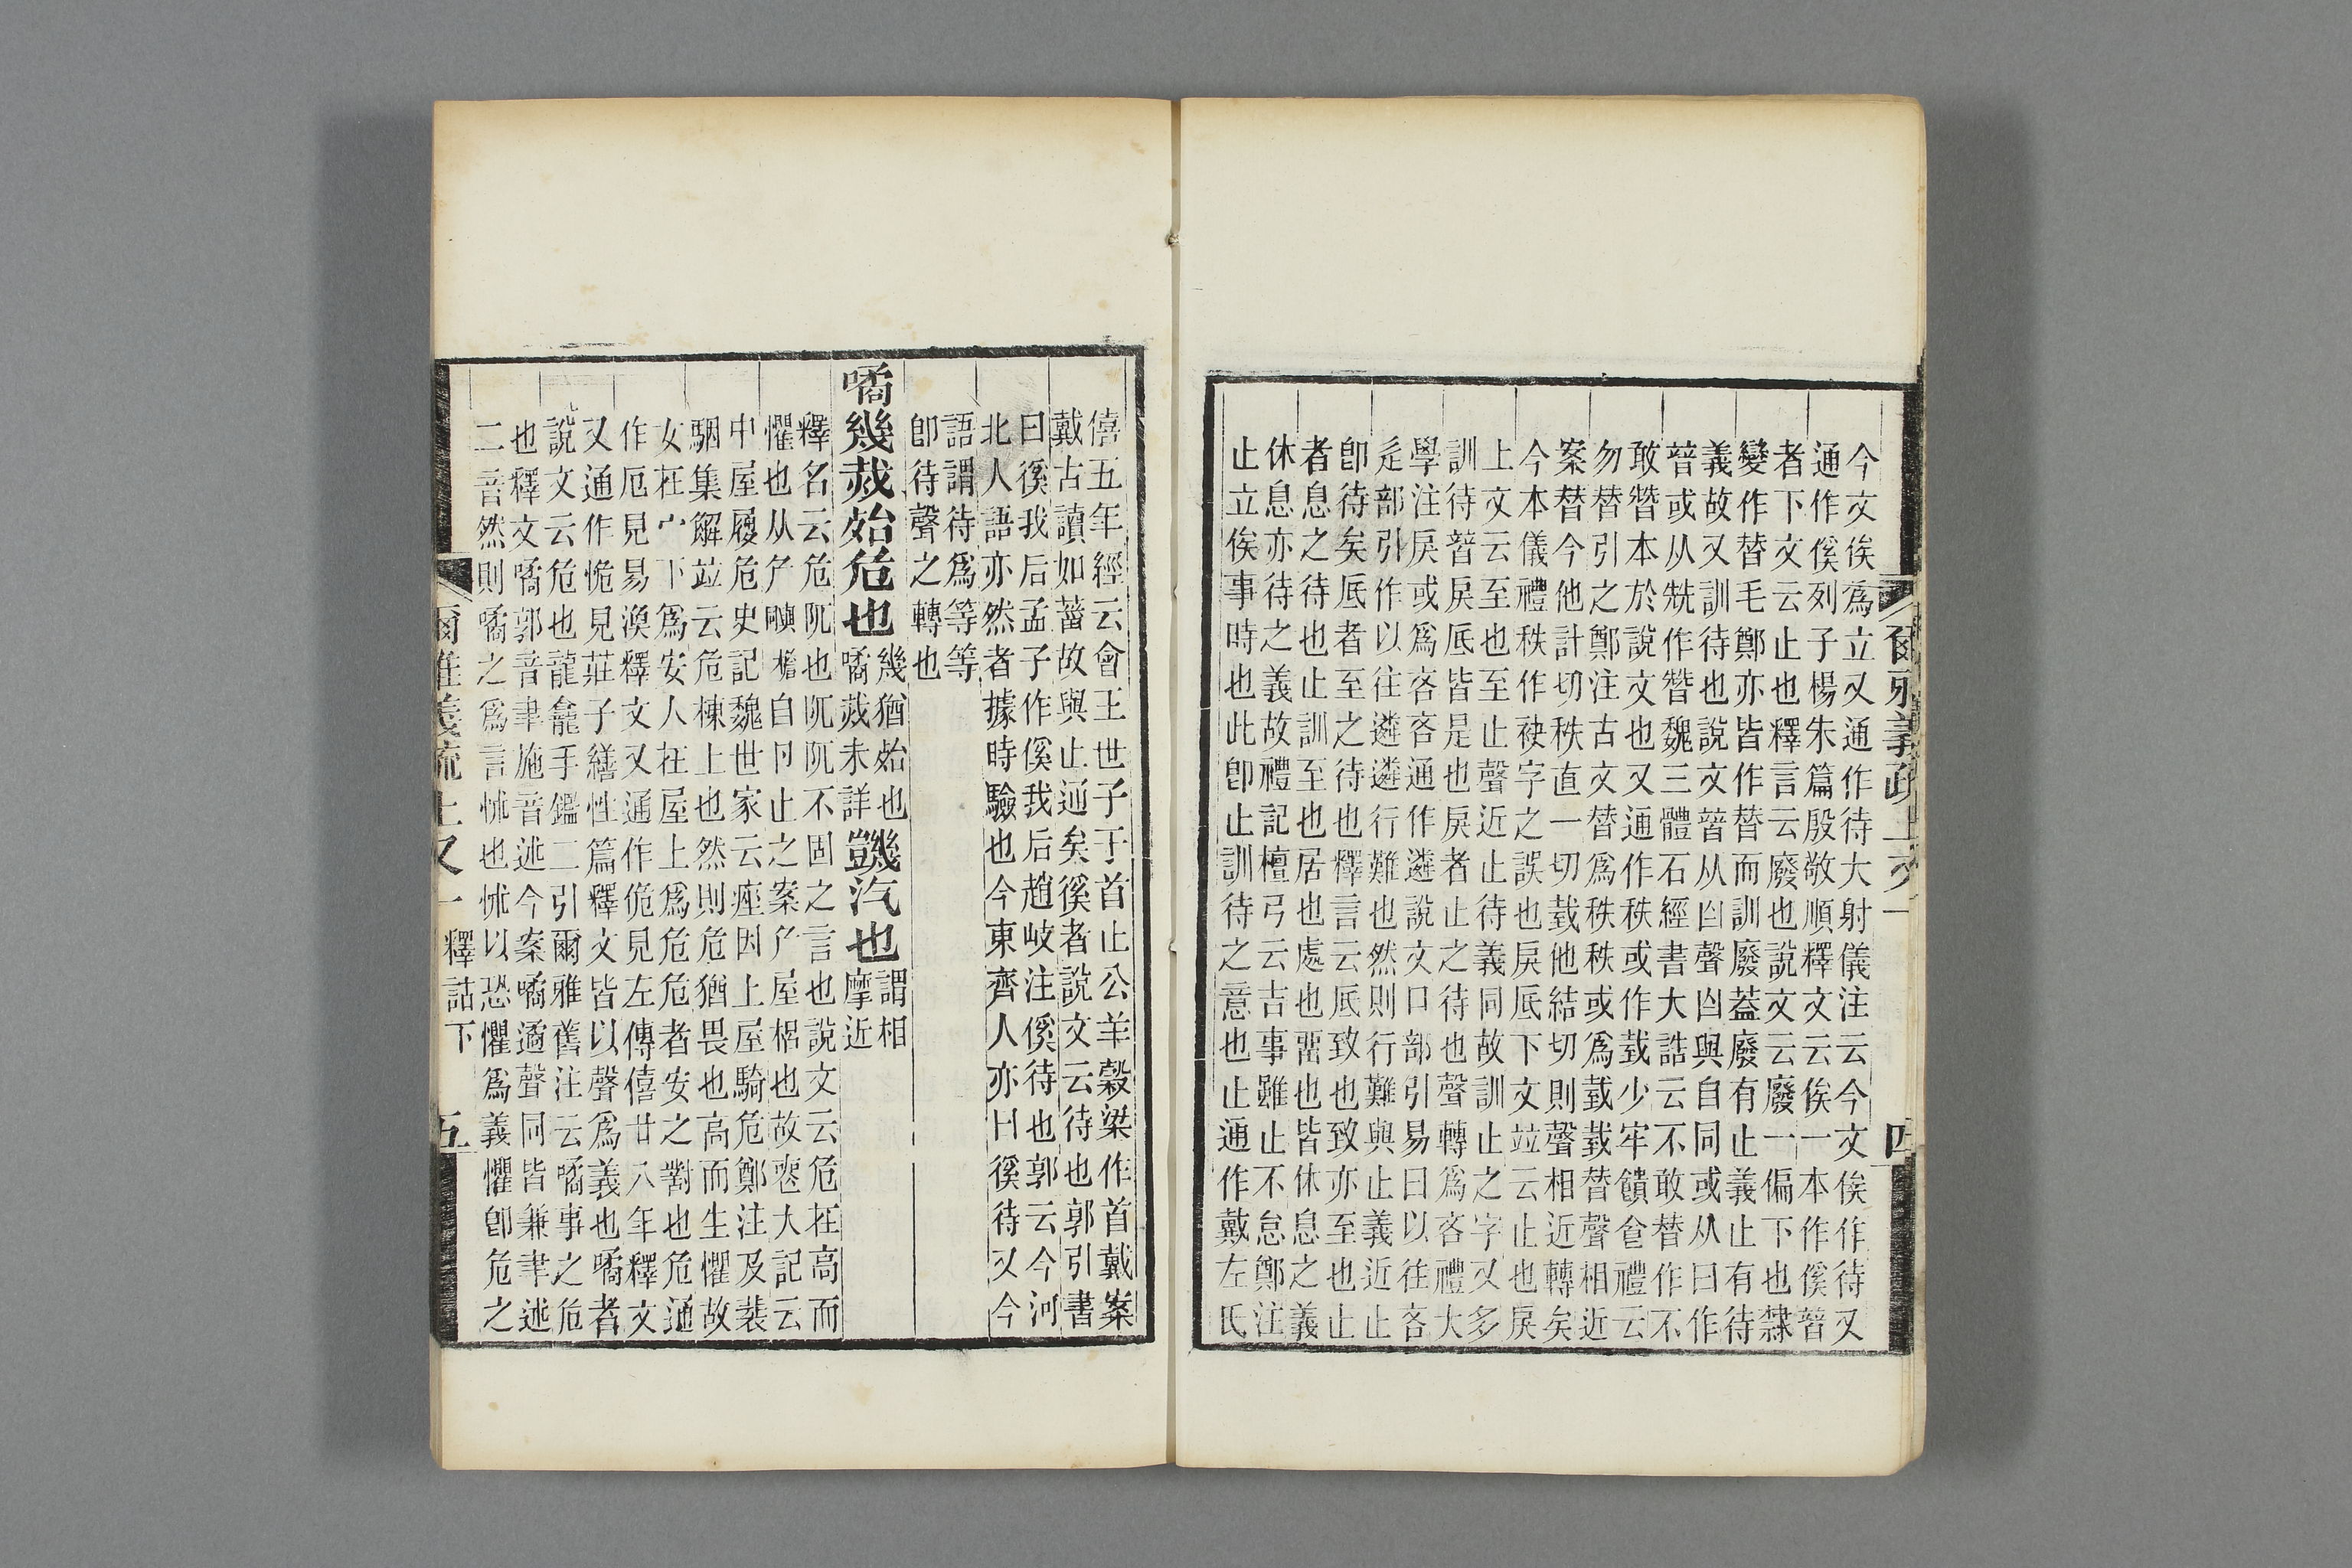 今文俟爲立又通作待大射儀注云今文俟作待又
通作傒列子楊朱篇殷敬順釋文云俟一本作傒暜
者下文云止也釋言云廢也說文云廢一偏下也隸
變作替毛鄭亦皆作替而訓廢蓋廢有止義止有待
義故又訓待也說文暜从白聲白與自同或从曰作
暜或从兟作朁魏三體石經書大誥云不敢替作不
敢朁本於說文也又通作秩或作臷少牢饋食禮云
勿替引之鄭注古文替爲秩秩或爲臷臷替聲相近
案替今他計切秩直一切臷他結切則聲相近轉矣
今本儀禮秩作袂字之誤也戾底下文竝云止也戾
上文云至也至止聲近止待義同故訓止之字又多
訓待暜戾底皆是也戾者止之待也聲轉爲吝禮大
學注戾或爲吝吝通作遴說文口部引易曰以往吝
辵部引作以往遴遴行難也然則行難與止義近止
卽待矣底者至之待也釋言云底致也致亦至也止
者息之待也止訓至也居也處也畱也皆休息之義
休息亦待之義故禮記檀弓云吉事雖止不怠鄭注
止立俟事時也此卽止訓待之意也止通作戴左氏
爾雅義疏上又一
四
僖五年經云會王世子于首止公羊穀梁作首戴案
戴古讀如菑故與止通矣徯者說文云待也郭引書
曰徯我后孟子作傒我后趙岐注傒待也郭云今河
北人語亦然者據時驗也今東齊人亦曰徯待又今
語謂待爲等等
卽待聲之轉也
噊幾烖殆危也幾猶殆也噊烖未詳譏汽也謂相摩近
釋名云危阢也阢阢不固之言也說文云危在高而
懼也从厃自卪止之案厃屋梠也故喪大記云
中屋履危史記魏世家云痤因上屋騎危鄭注及裴
駰集解竝云危棟上也然則危猶畏也高而生懼故
女在宀下爲安人在屋上爲危危者安之對也危通
作厄見易渙釋文又通作佹見左傳僖廿八年釋文
又通作恑見莊子繕性篇釋文皆以聲爲義也噊者
說文云危也龍龕手鑑二引爾雅舊注云噊事之危
也釋文噊郭音聿施音述今案噊遹聲同皆兼聿述
二音然則噊之爲言怵也怵以恐懼爲義懼卽危之
爾雅義疏上又一 釋詁下
五